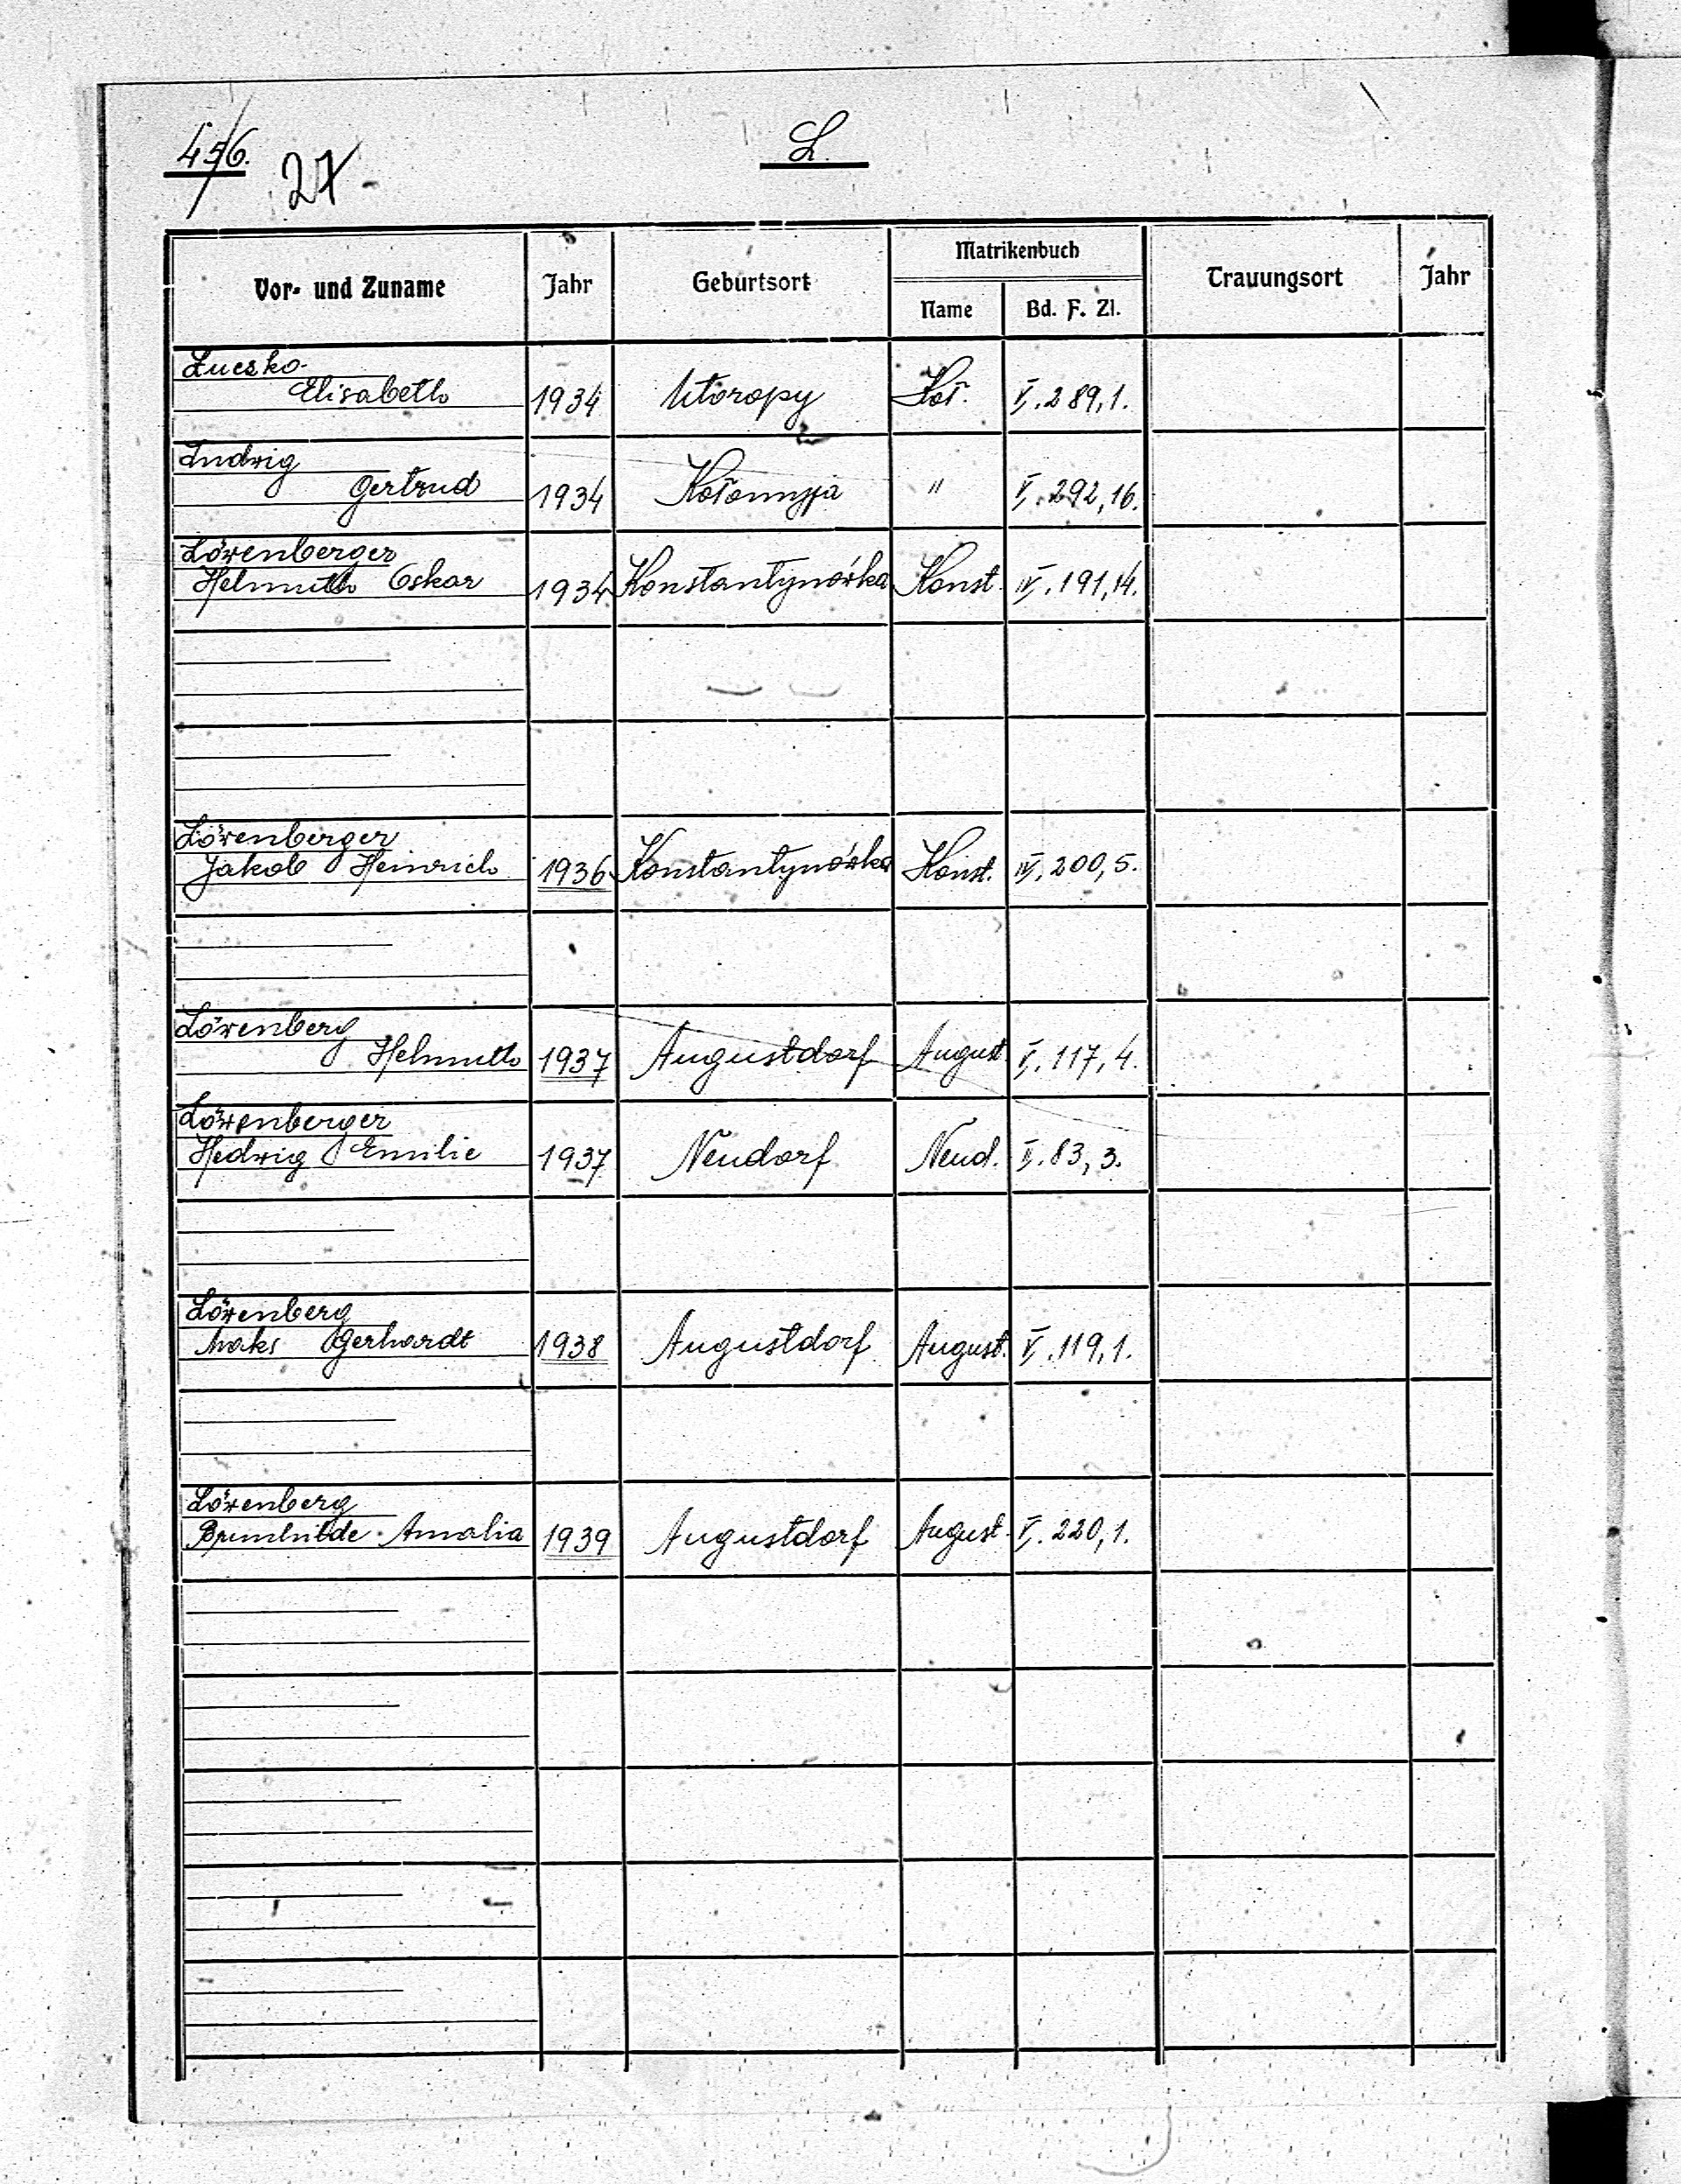 456. 27
L.
Vor- und Zuname Jahr Geburtsort Matrikenbuch Trauungsort Jahr
Name Bd. F. Zl.
Łuczko
Elisabeth 1934 Utoropy Koł. V. 289,1.
Ludwig
Gertrud 1934 Kołomyja " V. 292,16.
Löwenberger
Helmuth Oskar 1934 Konstantynówka Konst. IV. 191,14.
Löwenberger
Jakob Heinrich 1936 Konstantynówka Konst. IV. 200,5.
Löwenberg
Helmuth 1937 Augustdorf August V. 117,4.
Löwenberger
Hedwig Emilie 1937 Neudorf Neud. II. 83,3.
Löwenberg
Maks Gerhardt 1938 Augustdorf August. V. 119,1.
Löwenberg
Brunhilde Amalia 1939 Augustdorf August. V. 220,1.